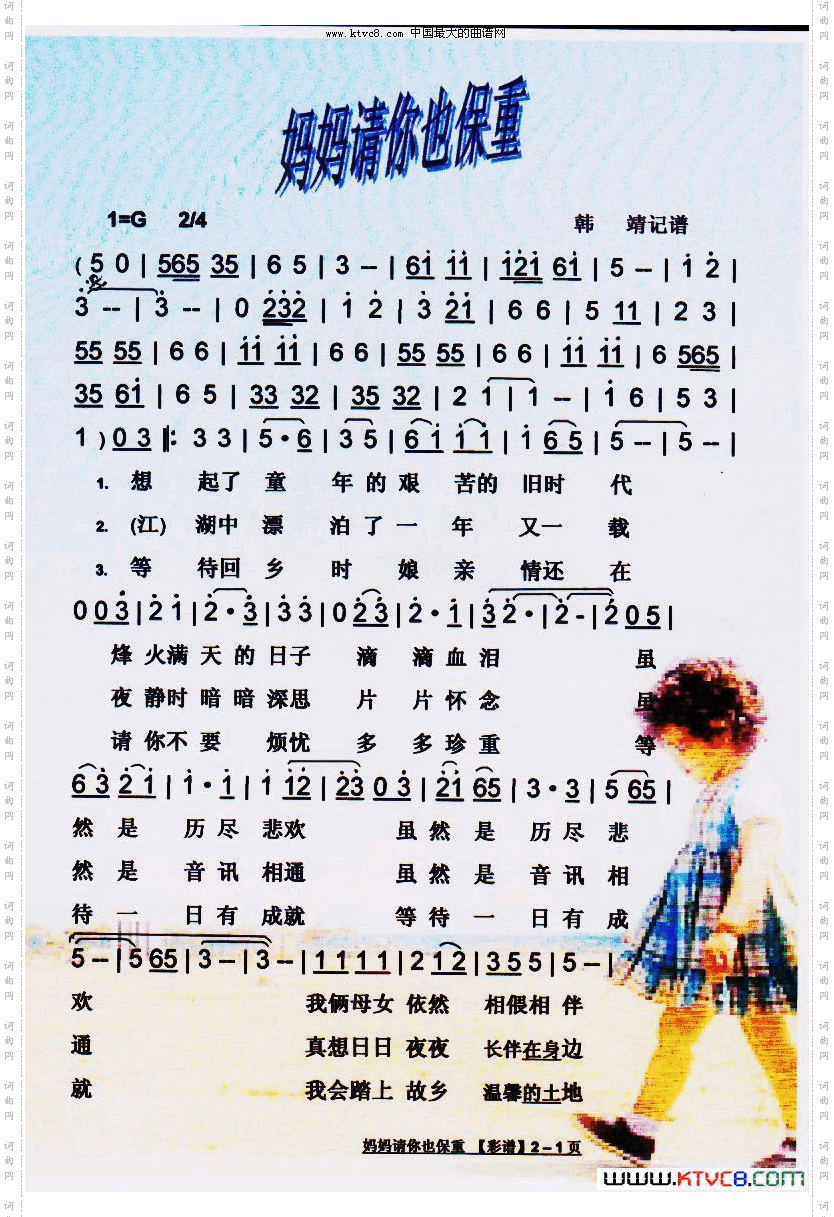 www.ktvc8.com 中国最大的曲谱网
妈妈请你也保重
1=G 2/4 韩 靖记谱
( 5 0 | 565 35 | 6 5 | 3 -- | 61 11 | 121 61 | 5 -- | 1 2 |
3 -- | 3 -- | 0 232 | 1 2 | 3 21 | 6 6 | 5 11 | 2 3 |
55 55 | 6 6 | 11 11 | 6 6 | 55 55 | 6 6 | 11 11 | 6 565 |
35 61 | 6 5 | 33 32 | 35 32 | 2 1 | 1 -- | 1 6 | 5 3 |
1 ) 0 3 |: 3 3 | 5 · 6 | 3 5 | 6 1 1 1 | 1 6 5 | 5 -- | 5 -- |
1. 想 起了 童 年 的 艰 苦的 旧时 代
2. (江) 湖中 漂 泊 了 一 年 又一 载
3. 等 待回 乡 时 娘 亲 情还 在
0 0 3 | 2 1 | 2 · 3 | 3 3 | 0 2 3 | 2 · 1 | 3 2 · | 2 - | 2 0 5 |
烽 火满 天 的 日子 滴 滴 血 泪 虽
夜 静时 暗 暗 深思 片 片 怀 念 虽
请 你不 要 烦忧 多 多 珍 重 等
6 3 2 1 | 1 · 1 | 1 12 | 23 0 3 | 21 65 | 3 · 3 | 5 65 |
然 是 历 尽 悲欢 虽 然 是 历 尽 悲
然 是 音 讯 相通 虽 然 是 音 讯 相
待 一 日 有 成就 等 待 一 日 有 成
5 -- | 5 65 | 3 -- | 3 -- | 1 1 1 1 | 2 1 2 | 3 5 5 | 5 -- |
欢 我俩母女 依然 相偎相 伴
通 真想日日 夜夜 长伴在身边
就 我会踏上 故乡 温馨的土地
妈妈请你也保重 【彩谱】2－1页
www.KTVC8.com